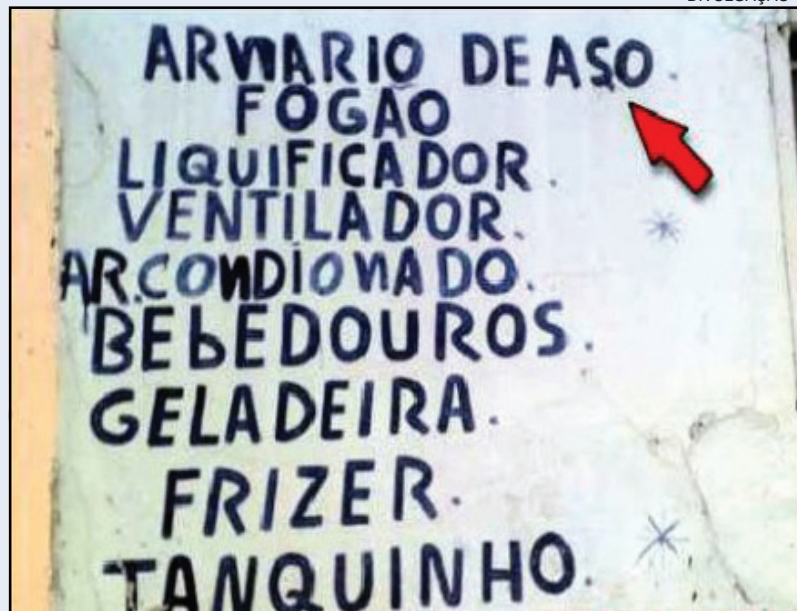 ARMARIO DE ASO.
FOGÃO
LIQUIFICADOR.
VENTILADOR.
AR.CONDIONADO.
BEbEDOUROS.
GELADEIRA.
FRIZER.
TANQUINHO.